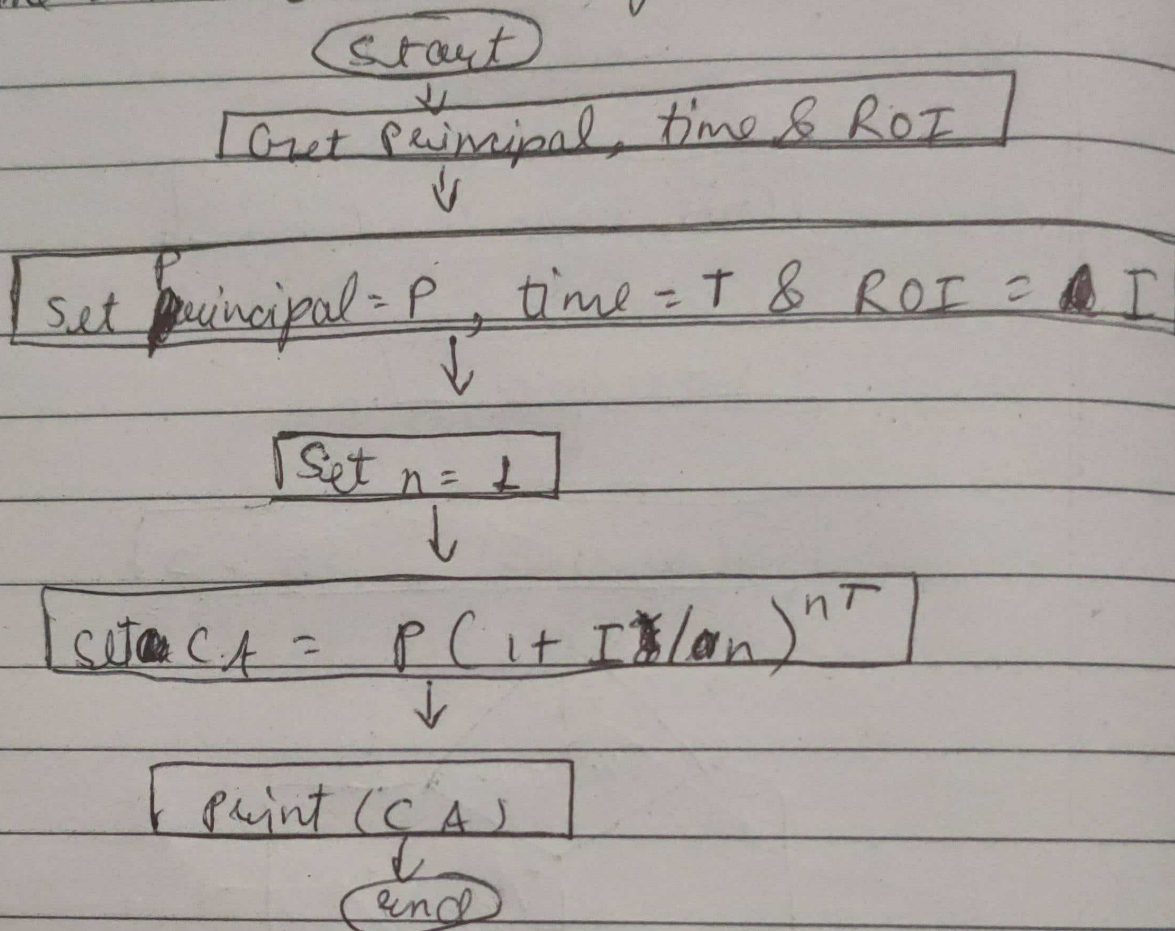 start
Get Principal, time & ROI
Set Principal = P, time = T & ROI = I
Set n = 1
set CA = P(1+ I/n)^nT
Print (CA)
end